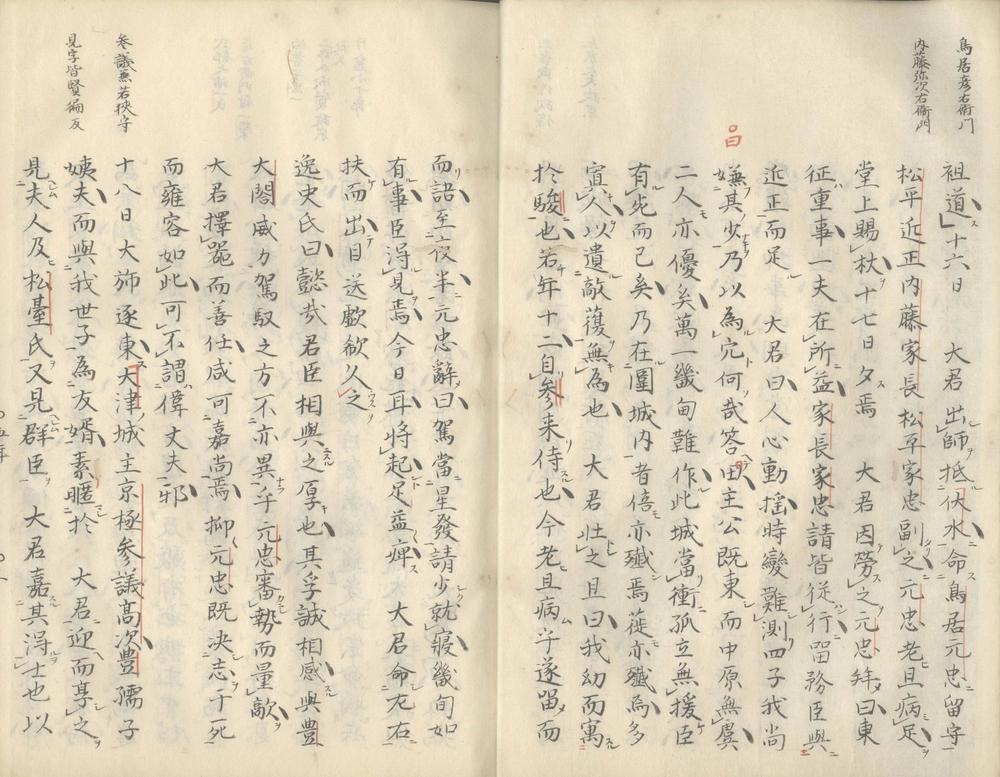 鳥居彦右衛門
内藤弥次右衛門
祖道十六日　大君出師抵伏水命鳥居元忠留守
松平近正内藤家長松平家忠副之元忠老且病足
堂上賜杖十七日夕焉　大君因勞之元忠辤曰東
征重事一夫在所益家長家忠請皆從行留務臣與
近正而足　大君曰人心動揺時變難測四子我尚
嫌其少乃以為冗何哉答曰主公既東而中原無虞
二人亦優矣萬一畿甸難作此城當衝孤立無援臣
有死而已矣乃在圍城内者倍亦殱焉蓰亦殱焉多
寘人以遺敵蕧無為也　大君壮之且曰我幼而寓
於駿也若年十三自参来侍也今老且病乎遂留而
而語至夜半元忠辭曰駕當星發請少就寢幾旬如
有事臣得見焉今日耳将起足益痺　大君命左右
扶而出目送歔欷久之
逸史氏曰懿哉君臣相與之厚也其孚誠相感與豊
大閤威力駕馭之方不亦異乎元忠審勢而量敵
大君擇器而善任咸可嘉尚焉抑元忠既决志于死
而雍容如此可不謂偉丈夫邪
十八日大斾逐東大津城主京極参議高次豊孺子
姨夫而與我世子為友婿素暱於　大君迎而享之
見夫人及松臺氏又見群臣　大君嘉其得士也以
参議兼若狭守
見字皆賢徧反